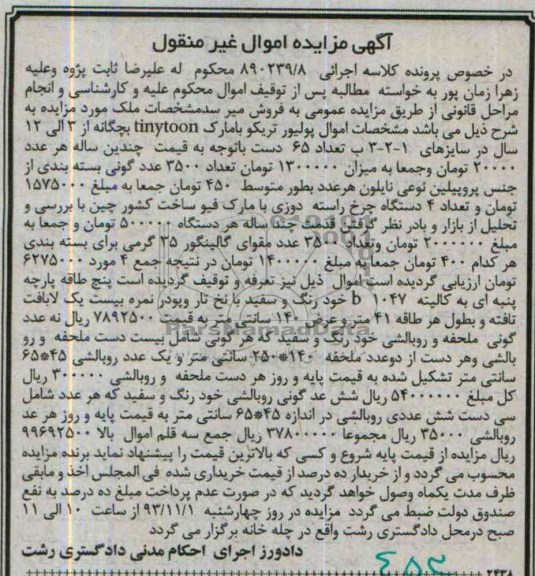 آگهی مزایده اموال غیر منقول
در خصوص پرونده کلاسه اجرائی ۸۹۰۲۳۹/۸ محکوم له علیرضا ثابت پژوه وعلیه
زهرا زمان پور به خواسته مطالبه پس از توقیف اموال محکوم علیه و کارشناسی و انجام
مراحل قانونی از طریق مزایده عمومی به فروش میر سدمشخصات ملک مورد مزایده به
شرح ذیل می باشد مشخصات اموال پولیور تریکو بامارک tinytoon بچگانه از ۳ الی ۱۲
سال در سایزهای ۱-۲-۳ ب تعداد ۶۵ دست باتوجه به قیمت چندین ساله هر عدد
۲۰۰۰۰ تومان وجمعا به میزان ۱۳۰۰۰۰۰ تومان تعداد ۳۵۰۰ عدد گونی بسته بندی از
جنس پروپیلین نوعی نایلون هرعدد بطور متوسط ۴۵۰ تومان جمعا به مبلغ ۱۵۷۵۰۰۰
تومان و تعداد ۴ دستگاه چرخ راسته دوزی با مارک فیو ساخت کشور چین با بررسی و
تحلیل از بازار و بادر نظر گرفتن قدمت چند ساله هر دستگاه ۵۰۰۰۰۰ تومان و جمعا به
مبلغ ۲۰۰۰۰۰۰ تومان وتعداد ۳۵۰۰ عدد مقوای گالینگور ۳۵ گرمی برای بسته بندی
هر کدام ۴۰۰ تومان جمعا به مبلغ ۱۴۰۰۰۰۰ تومان در نتیجه جمع ۴ مورد ۶۲۷۵۰۰۰
تومان ارزیابی گردیده است اموال ذیل نیز تعرفه و توقیف گردیده است پنج طاقه پارچه
پنبه ای به کالیته b ۱۰۴۷ خود رنگ و سفید با نخ تار وپودر نمره بیست یک لابافت
تافته و بطول هر طاقه ۴۱ متر و عرض ۱۴۰ سانتی متر به قیمت ۷۸۹۲۵۰۰ ریال نه عدد
گونی ملحفه و روبالشی خود رنگ و سفید که هر گونی شامل بیست دست ملحفه و رو
بالشی وهر دست از دوعدد ملحفه ۱۴۰*۲۵۰ سانتی متر و یک عدد روبالشی ۴۵*۶۵
سانتی متر تشکیل شده به قیمت پایه و روز هر دست ملحفه و روبالشی ۳۰۰۰۰۰ ریال
کل مبلغ ۵۴۰۰۰۰۰۰ ریال شش عد گونی روبالشی خود رنگ و سفید که هر عدد شامل
سی دست شش عددی روبالشی در اندازه ۴۵*۶۵ سانتی متر به قیمت پایه و روز هر عد
روبالشی ۳۵۰۰۰ ریال مجموعا ۳۷۸۰۰۰۰۰ ریال جمع سه قلم اموال بالا ۹۹۶۹۲۵۰۰
ریال مزایده از قیمت پایه شروع و کسی که بالاترین قیمت را پیشنهاد نماید برنده مزایده
محسوب می گردد و از خریدار ده درصد از قیمت خریداری شده فی المجلس اخذ و مابقی
ظرف مدت یکماه وصول خواهد گردید که در صورت عدم پرداخت مبلغ ده درصد به نفع
صندوق دولت ضبط می گردد مزایده در روز چهارشنبه ۹۳/۱۱/۱ از ساعت ۱۰ الی ۱۱
صبح درمحل دادگستری رشت واقع در چله خانه برگزار می گردد
دادورز اجرای احکام مدنی دادگستری رشت
۲۴۳۸
ParsNamadData